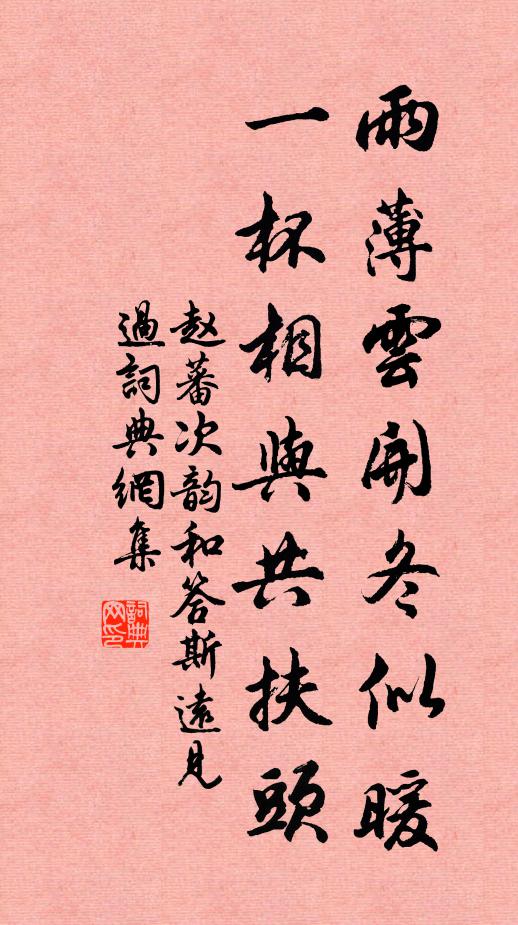 雨薄雲開冬似暖
一杯相與共扶頭
赵蕃次韵和答斯遠見
過詞典網集
詞典网印